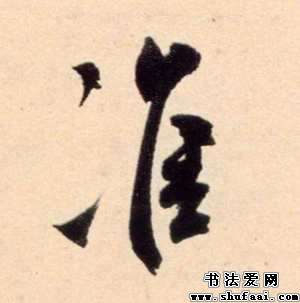 准
书法爱网
www.shufaai.com